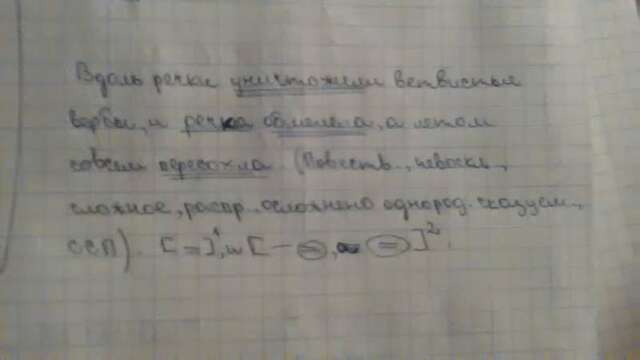 Вдоль речки уничтожили ветвистые
вербы, и речка обмелела, а летом
совсем пересохла. (Повеств., невоскл.,
сложное, распр. осложнено однород. сказуем.,
ССП). [=]¹, и [- (=), а (=)]².